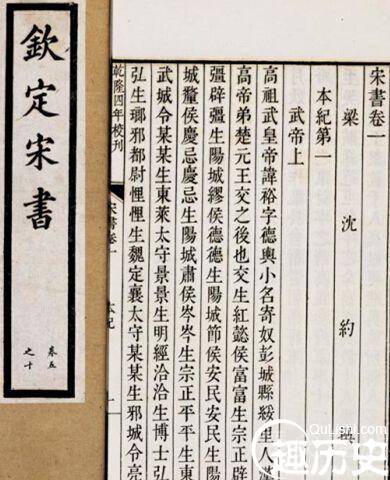 宋書卷一
梁 沈 約 撰
本紀第一
武帝上
高祖武皇帝諱裕字德輿小名寄奴彭城縣綏里人漢
高帝弟楚元王交之後也交生紅懿侯富富生宗正辟
彊辟彊生陽城繆侯德德生陽城節侯安民安民生陽
城釐侯慶忌慶忌生陽城肅侯岑岑生宗正平平生東
武城令某某生東萊太守景景生明經洽洽生博士弘
弘生瑯邪都尉悝悝生魏定襄太守某某生邪城令亮
乾隆四年校刊 宋書卷一 本紀 一
欽定宋書
卷五
之十
QuLishi.com
趣历史